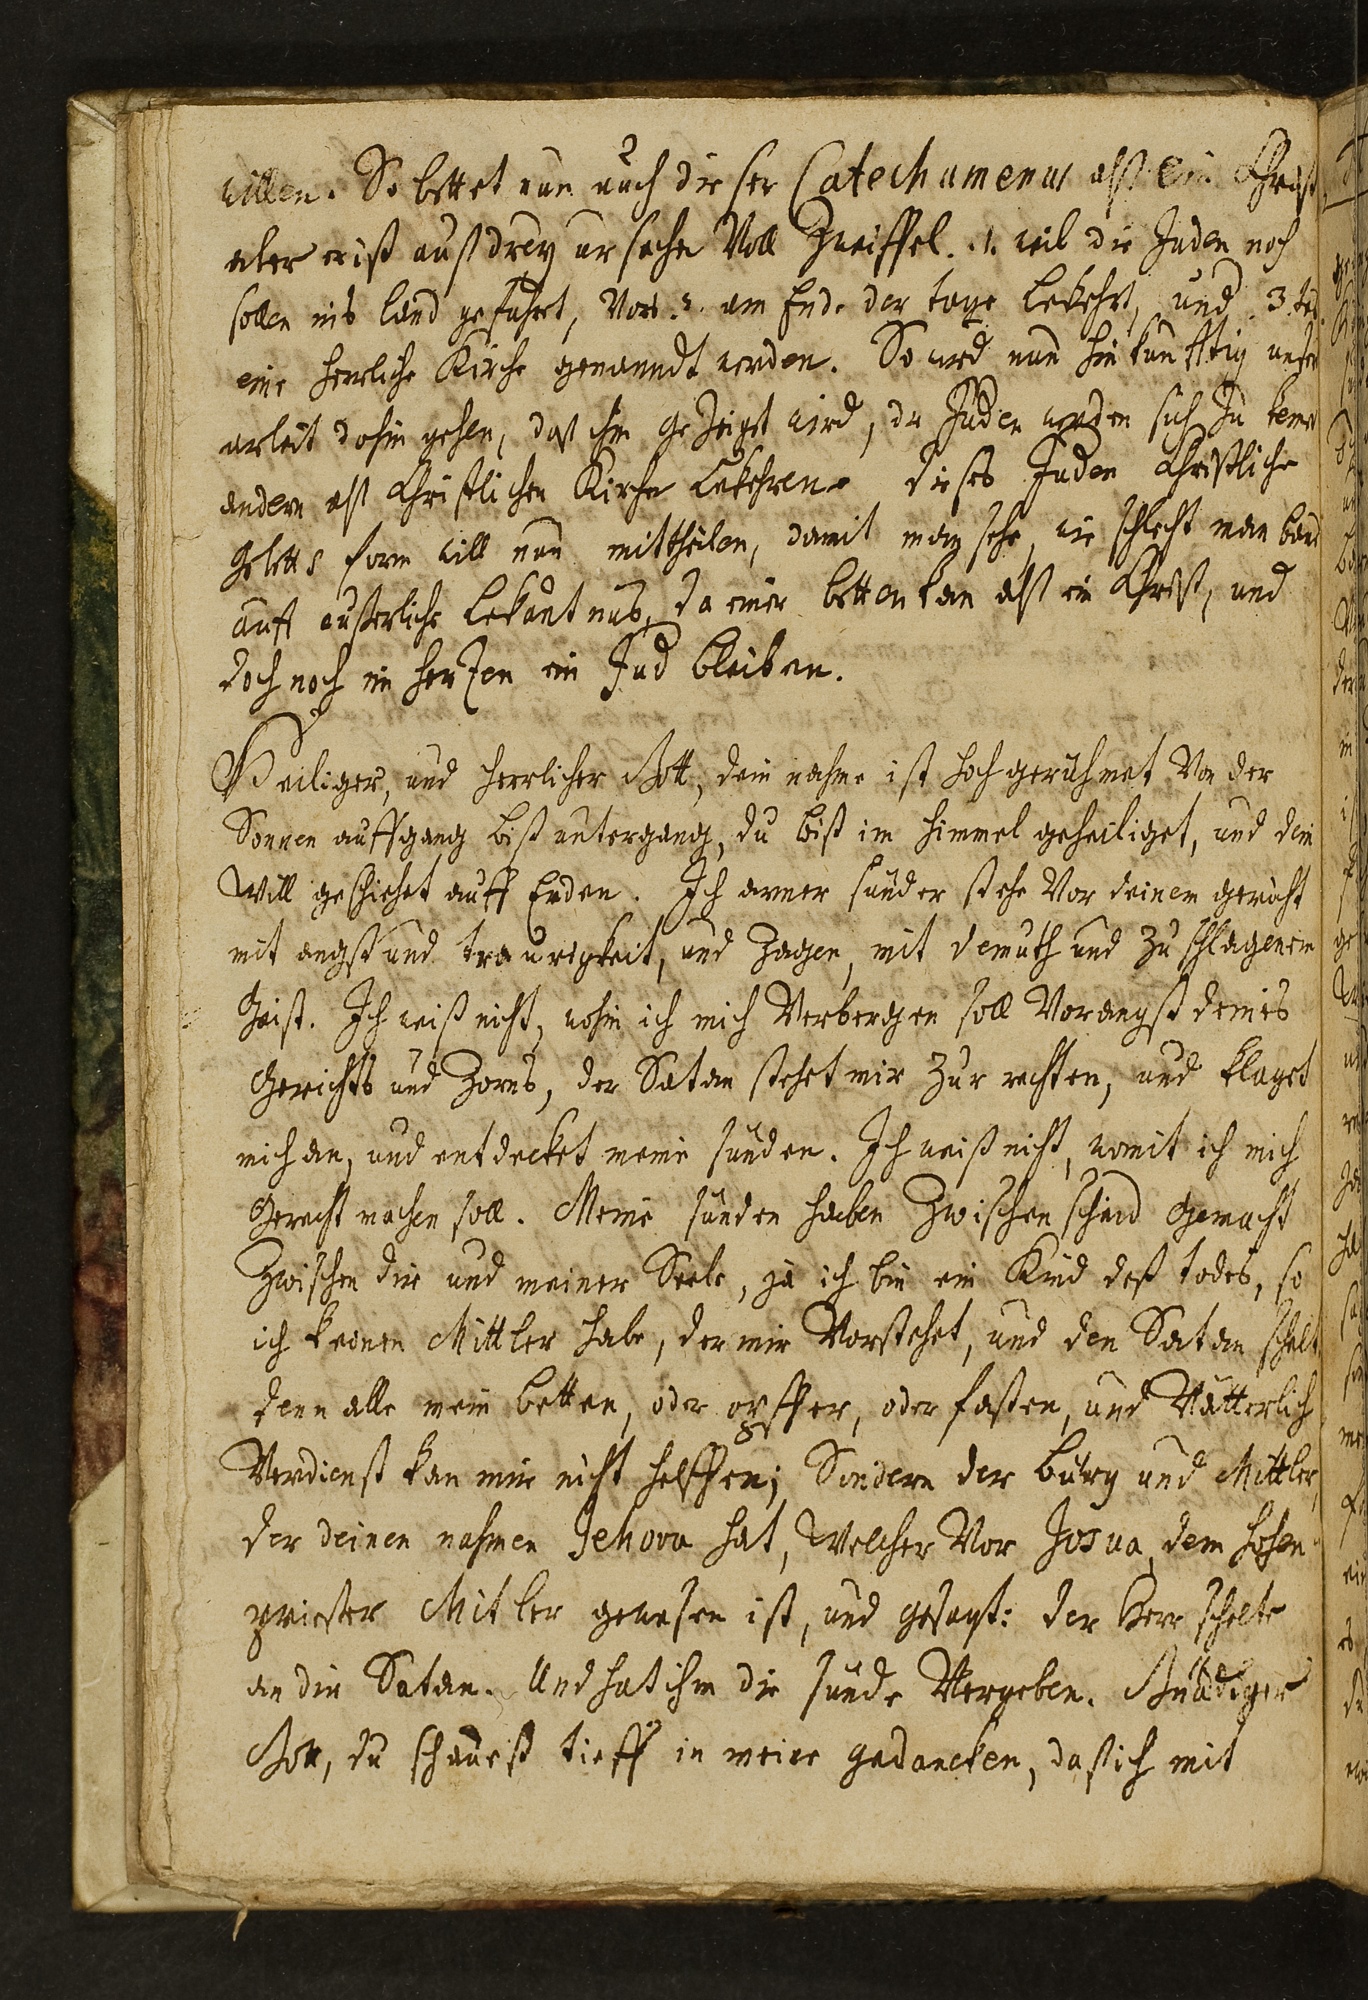 willen. So bettet nun auch dieser Catechumenus alß Ein Christ
aber er ist auß drey ursachen Voll Zweiffel. .1. weil die Juden noch
sollen ins land geführt, Vors. 2. am Ende der tage bekehrt, und .3.
eine herrliche Kirche genanndt werden. So wird nun hinkünfftig unser
arbeit dahin gehen, daß ihm gezeiget wird, die Juden werden sich zu keiner
andern alß Christlichen Kirche bekehren. dieses Juden Christliche
gebetts form will nun mittheilen, damit man sehe, wie schlecht man baue
auff eußerliche bekäntnus, da einer betten kan alß ein Christ, und
doch noch im herzen ein Jud bleiben.
Heiliger, und herrlicher Gott, dein nahme ist hochgerühmet Von der
Sonnen auffgang biß untergang, du bist im himmel geheiliget, und dein
Will geschiehet auff Erden. Ich armer sünder stehe Vor deinem gericht
mit angst und traurigkeit, und zagen, mit demuth und zuschlagenem
Geist. Ich weiß nicht, wohin ich mich Verbergen soll Vor angst deines
Gerichts und Zorns, der Satan stehet mir zur rechten, und klaget
mich an, und entdecket meine sünden. Ich weiß nicht, womit ich mich
Gerecht machen soll. Meine sünden haben Zwischen scheid gemacht
Zwischen dir und meiner Seele, ja ich bin ein Kind deß todes, so
ich keinen Mittler habe, der mir Vorstehet, und den Satan schelt
denn alle mein betten, oder opffer, oder fasten, und Vätterlich
Verdienst kan mir nicht helffen; Sondern der bürg und Mittler,
der deinen nahmen Jehova hat, Welcher Vor Josua, dem hohen
priester Mitler gewesen ist, und gesagt: der Herr schelte
an dir Satan. Und hat ihm die sünde Vergeben. Gnädiger
Gott, du schauest tieff in meine gedancken, daß ich mit